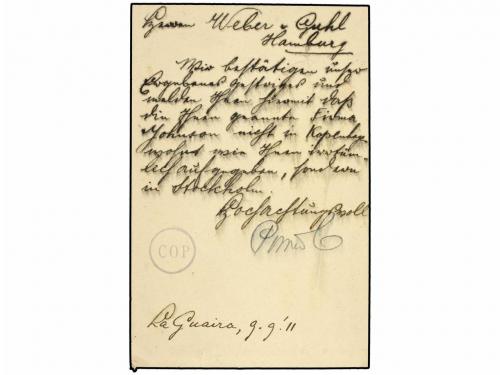 Herren Weber & Guhl
Hamburg
Wir bestätigen unser
Ergebenes Gestriges und
melden Ihnen hiermit daß
die Ihnen genannte Firma
Johnson nicht in Kopenhag
wohnt wie Ihnen irrtüm-
lich aufgegeben, sondern
in Stockholm.
Hochachtungsvoll
COP
La Guaira, 9.9.'11